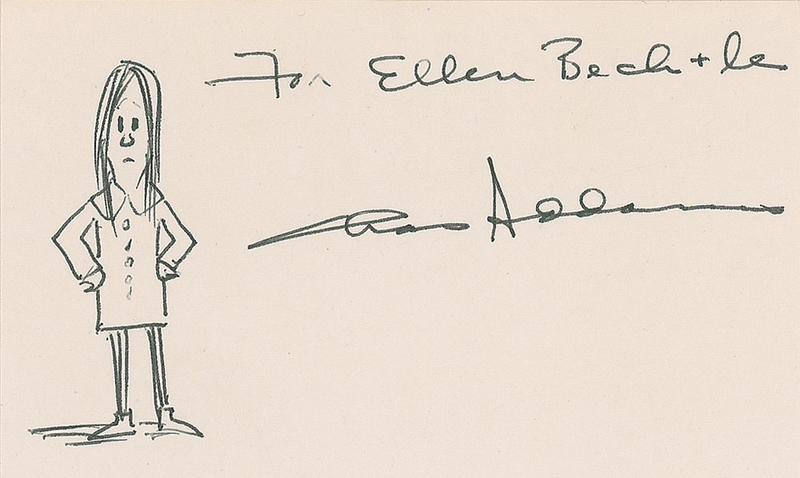 For Ellen Bechtle
Chas Addams